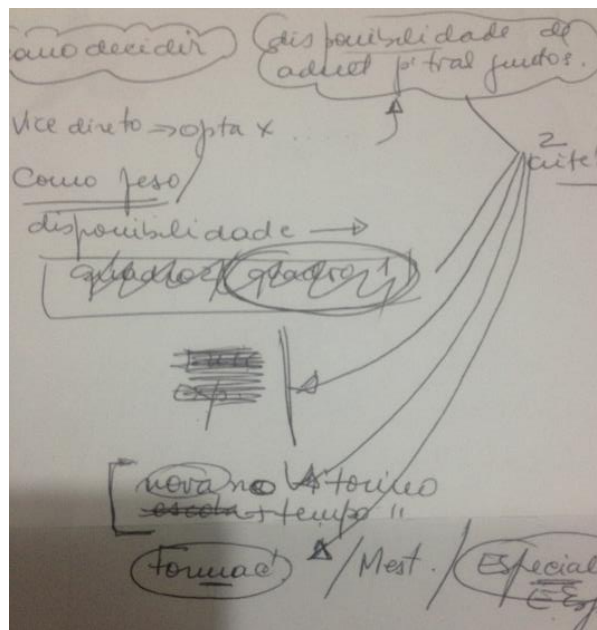 como decidir
disponibilidade de
p' trab juntos.
Vice direto → opta x
2
Como peso
crité
disponibilidade →
quadro 2 / quadro 1
exp.
nova no Vitorino
escola + tempo "
Formac / Mest. / Especial